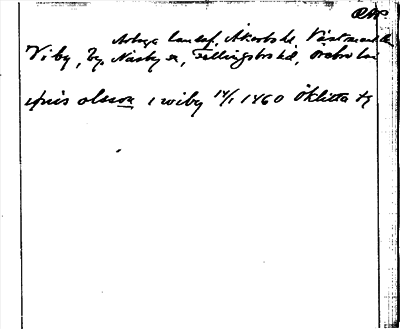 Arboga landsf, Åkerbo hd, Västmanl
Viby, by, Näsby sn, Fellingsbro hd, Örebro län
olsson i wiby 14/1 1460 Öklitta